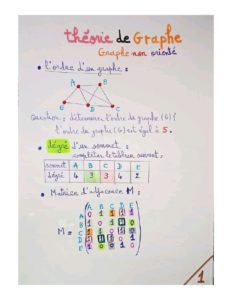 théorie de Graphe
Graphe non orienté
• l'ordre d'un graphe :
A B
E D C
Question : déterminer l'ordre de graphe (G) ?
l'ordre de graphe (G) est égal à 5.
• dégré d'un sommet :
compléter le tableau suivant,
sommet A B C D E
Dégré 4 3 3 4 2
• Matrice d'adjacence M :
A B C D E
M =
A
B
C
D
E
1